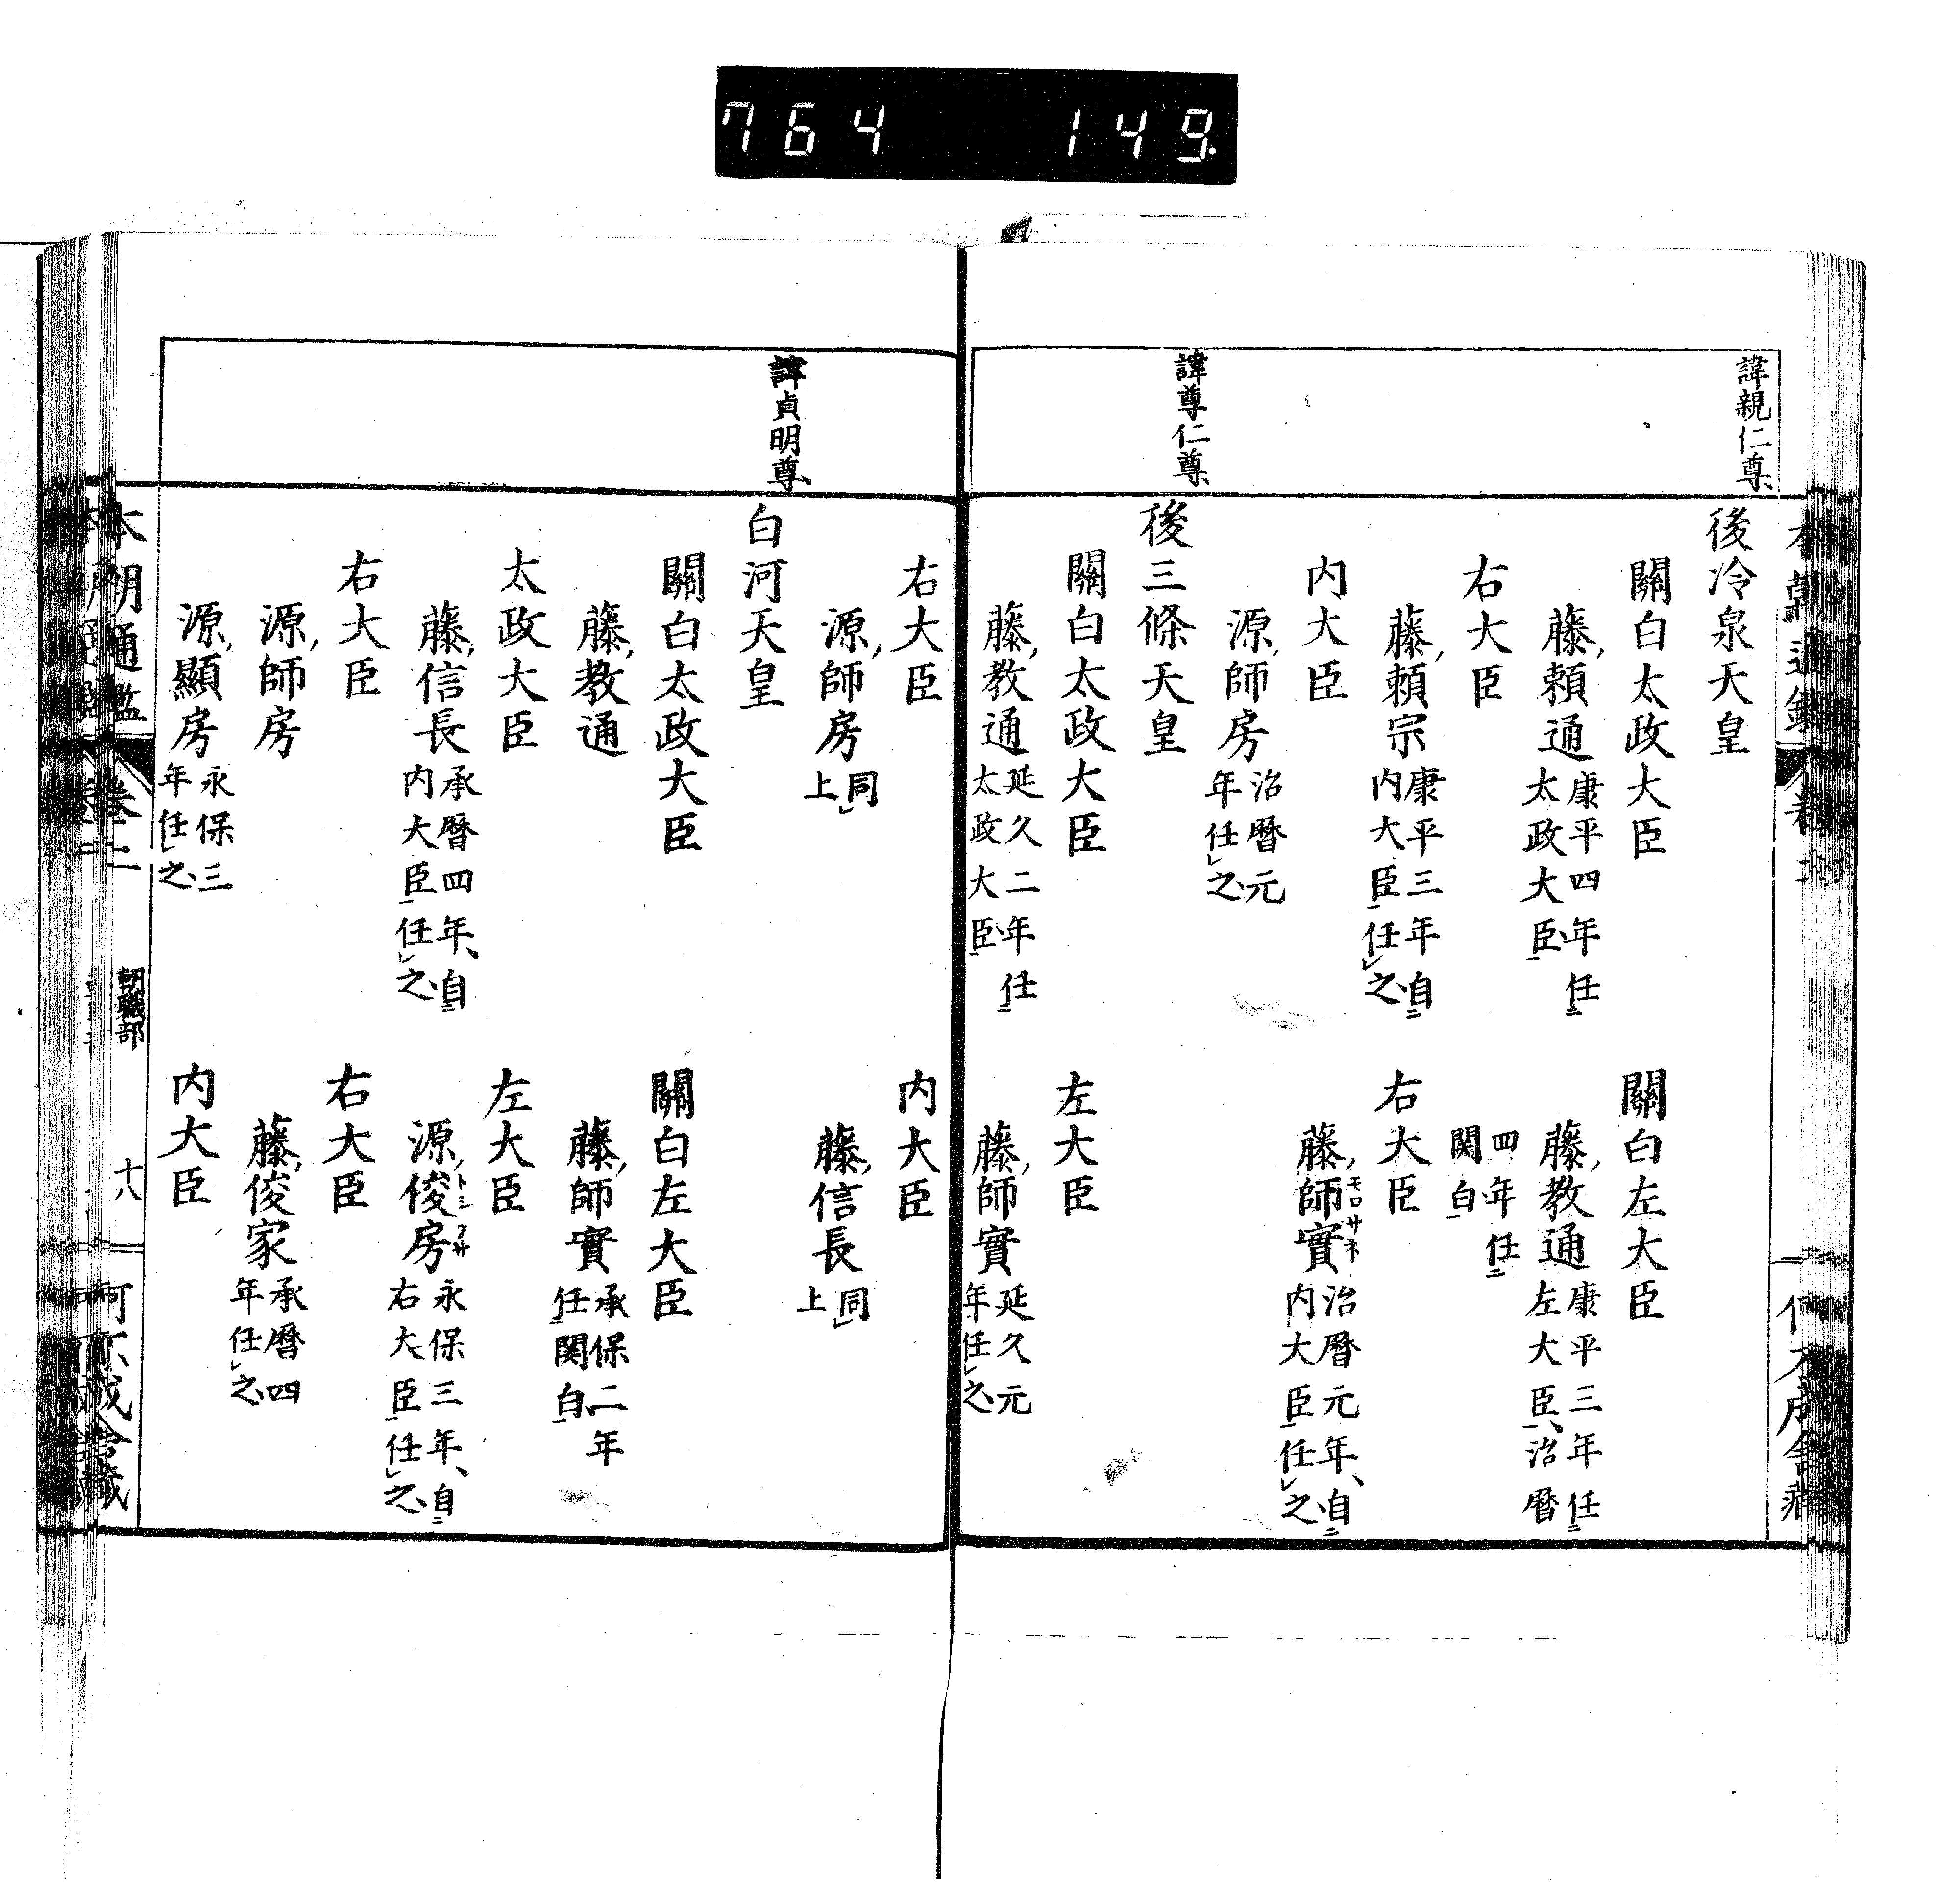 764 149
諱親仁尊
後冷泉天皇
關白太政大臣
關白左大臣
藤頼通 康平四年任ニ
太政大臣一
藤教通 康平三年任ニ
左大臣一、治曆
四年任ニ
関白一
右大臣
藤頼宗 康平三年自ニ
内大臣一任レ之
右大臣
藤師實 モロサネ 治曆元年、自ニ
内大臣一任レ之
内大臣
源師房 治曆元
年任レ之
諱尊仁尊
後三條天皇
關白太政大臣
左大臣
藤教通 延久二年任ニ
太政大臣一
藤師實 延久元
年任レ之
右大臣
内大臣
源師房 同
上
藤信長 同
上
諱貞明尊
白河天皇
關白太政大臣
關白左大臣
藤教通
藤師實 承保二年
任関白一
太政大臣
左大臣
藤信長 承曆四年、自ニ
内大臣一任レ之
源俊房 永保三年、自ニ
右大臣一任レ之
右大臣
右大臣
源師房
藤俊家 承曆四
年任レ之
源顯房 永保三
年任レ之
内大臣
本朝通鑑 卷二 朝職部 十八